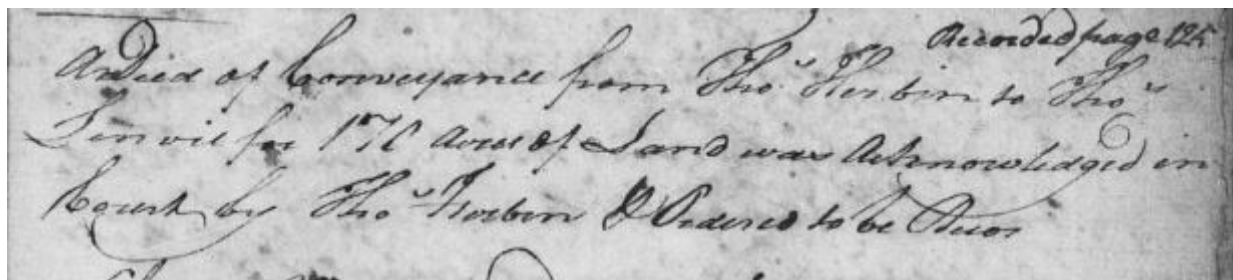 Recorded page 125
A Deed of Conveyance from Thos. Harbin to Thos.
Linvil for 170 Acres of Land was Acknowledged in
Court by Thos. Harbin & Ordered to be Recor